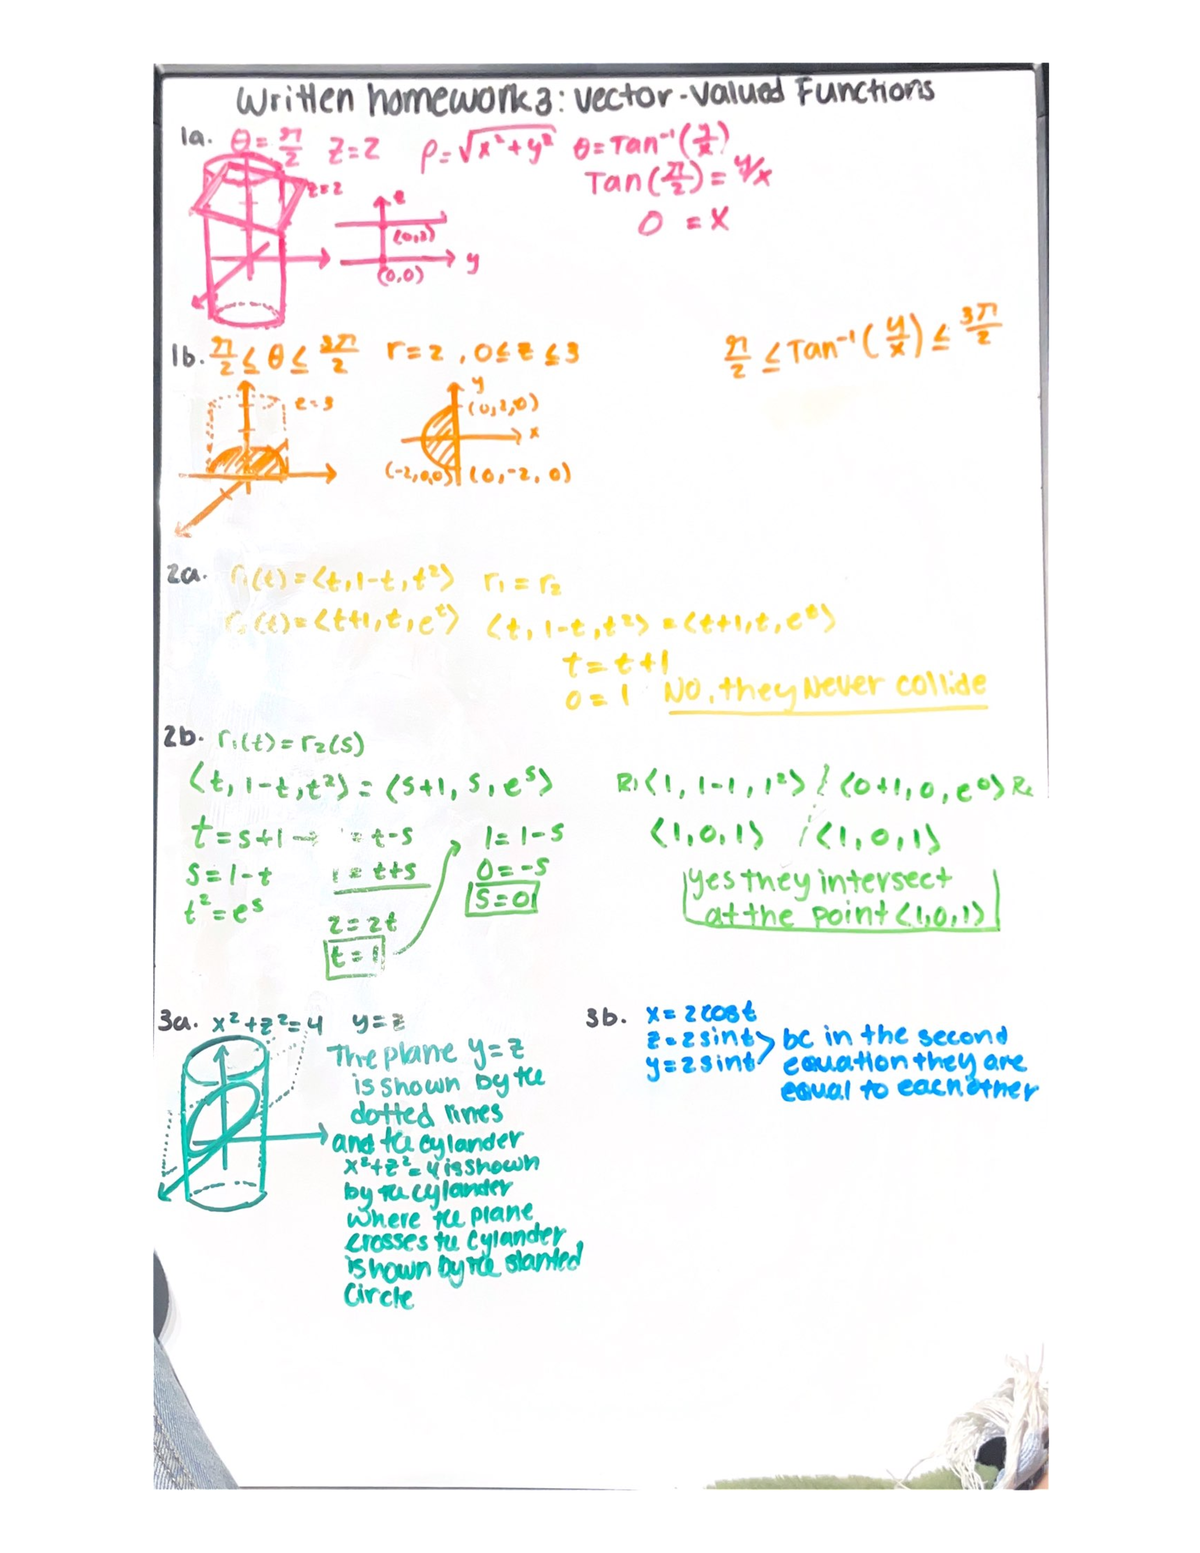 Written homework 3: Vector-Valued Functions
1a. θ = π/2 z=2 ρ=√x²+y² θ=Tan⁻¹(y/x)
Tan(π/2) = y/x
0 = x
z=2
z
(0,2)
y
(0,0)
1b. π/2 ≤ θ ≤ 3π/2 r=2, 0≤z≤3
π/2 ≤ Tan⁻¹(y/x) ≤ 3π/2
z=3
y
(0,2,0)
x
(-2,0,0) (0,-2,0)
2a. r₁(t)=⟨t,1-t,t²⟩ r₁=r₂
r₂(t)=⟨t+1,t,eᵗ⟩ ⟨t,1-t,t²⟩=⟨t+1,t,eᵗ⟩
t=t+1
0=1 NO, they Never collide
2b. r₁(t)=r₂(s)
⟨t,1-t,t²⟩=⟨s+1,s,eˢ⟩
t=s+1→ 1=t-s
s=1-t 1=t+s
t²=eˢ
2=2t
t=1
1=1-s
0=-s
s=0
R₁⟨1,1-1,1²⟩ ⟨0+1,0,e⁰⟩ R₂
⟨1,0,1⟩ ⟨1,0,1⟩
yes they intersect
at the point ⟨1,0,1⟩
3a. x²+z²=4 y=z
The plane y=z
is shown by the
dotted lines
and the cylander
x²+z²=4 is shown
by the cylander
where the plane
crosses the cylander
is hown by the slanted
circle
3b. x=2cost
z=2sint
y=2sint
bc in the second
equation they are
equal to eachother